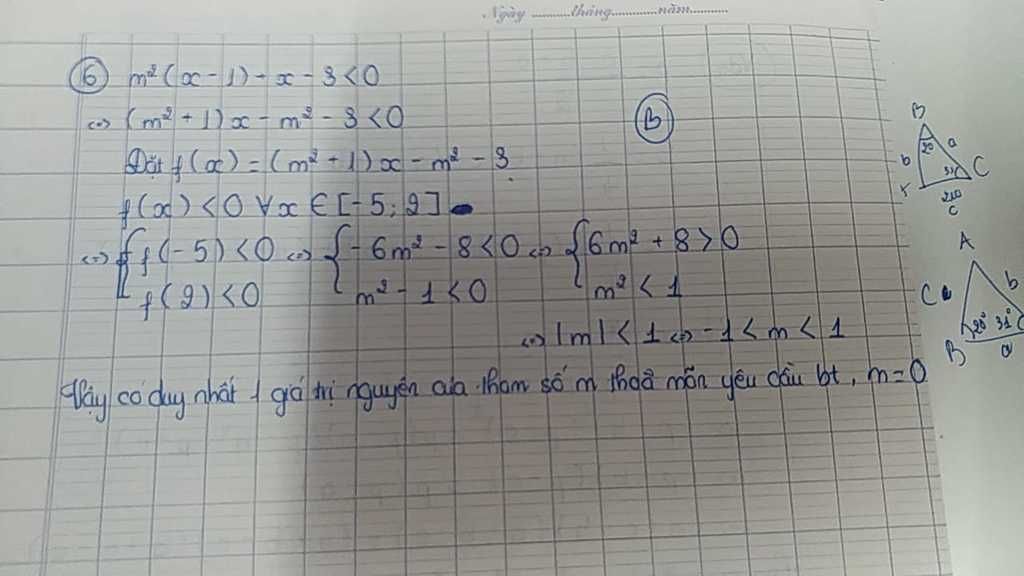 Ngày ...........tháng............năm...........
6 m²(x-1)-x-3<0
<=> (m²+1)x-m²-3<0
B
Đặt f(x)=(m²+1)x-m²-3
f(x)<0 ∀x∈[-5;2]
<=> { f(-5)<0 <=> { -6m²-8<0 <=> { 6m²+8>0
f(2)<0 m²-1<0 m²<1
<=> |m|<1 <=> -1<m<1
Vậy có duy nhất 1 giá trị nguyên của tham số m thoả mãn yêu cầu bt, m=0
B
20
a
b
31
C
210
c
A
C
b
28°
31°
C
B
a